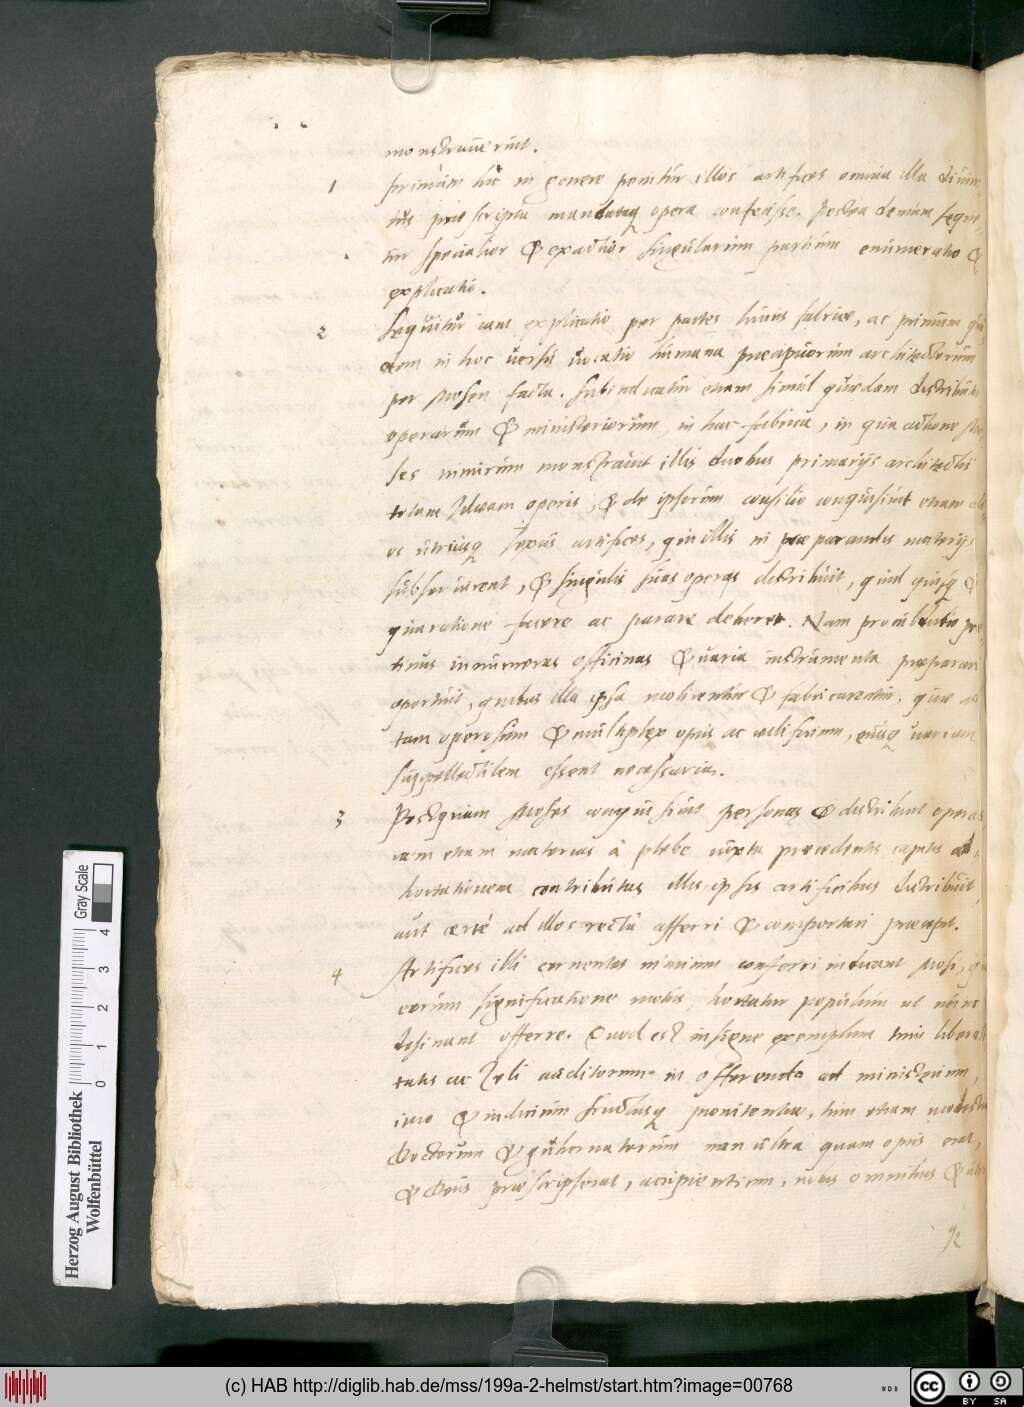 monstrauerint.
1 Primum hic in genere ponitur illos artifices omnia illa diuini
tus praescripta mandataq opera confecisse. Postea demum sequi
tur specialior & exactior singularum partium enumeratio &
explicatio.
2 Sequitur iam explicatio per partes huius fabricae, ac primum qui
dem in hoc uersu uocatio humana praecipuorum architectorum
per Mosen facta. Subindicatur etiam simul quaedam distributio
operarum & ministeriorum, in hac fabrica, in qua actione Mo
ses nimirum monstrauit illis duobus primarijs architectis
totam Ideam operis, & de ipsorum consilio conquisiuit etiam
os utriusq sexus artifices, qui illis in praeparandis materijs
subseruirent, & singulis suas operas distribuit, quid quisq &
qua ratione facere ac parare deberet. Nam procul dubio pro
tinus innumeras officinas & uaria instrumenta praeparari
oportuit, quibus illa ipsa molirentur & fabricarentur, quae ad
tam operosum & multiplex opus ac aedificium, eiusq uariam
suppellectilem essent necessaria.
3 Postquam Moses conquisiuit personas & distribuit operas
iam etiam materias à plebe iuxta praecedentis capitis ad,
hortationem contributas illis ipsis artificibus distribuit,
aut certè ad illos rectà afferri & comportari praecipit.
4 Artifices illi cernentes nimium conferri indicant Mosi, qui
eorum significatione motus, hortatur populum ut
desinant offerre. Quod est insigne exemplum tum liberali
tatis ac Zeli auditorum in offerendo ad ministerium,
imo & indicium fructusq poenitentiae, tum etiam modestiae
Doctorum & gubernatorum non ultra quam opus erat,
& Deus praescripserat, accipientium, nobis omnibus &